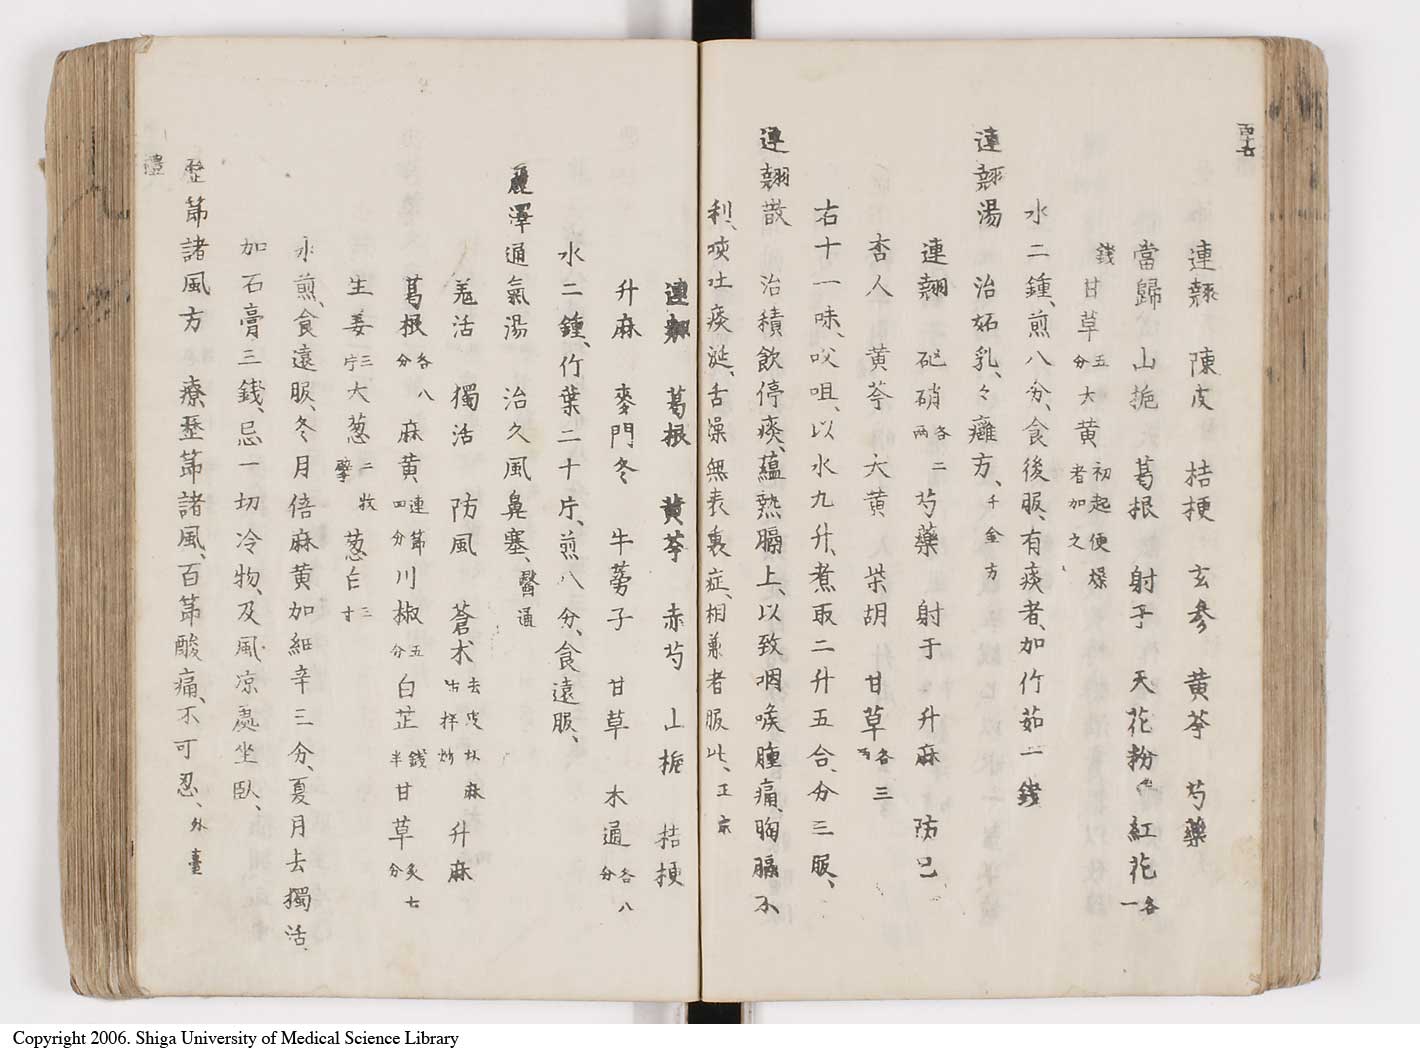 連翹 陳皮 桔梗 玄參 黄芩 芍藥
當歸 山梔 葛根 射干 天花粉 紅花各一
錢甘草五分大黄初起便燥者加之
水二鍾、煎八分、食後服、有痰者、加竹茹一錢
連翹湯 治妬乳、々癰方、千金方
連翹 硭硝各二兩 芍藥 射干 升麻 防已
杏人 黄芩 大黄 柴胡 甘草各三兩
右十一味、㕮咀、以水九升、煮取二升五合、分三服、
連翹散 治積飲停痰、蘊熱膈上、以致咽喉腫痛、胸膈不
利、咳吐痰涎、舌燥無表裏症、相兼者服此、正宗
連翹 葛根 黄芩 赤芍 山梔 桔梗
升麻 麥門冬 牛蒡子 甘草 木通各八分
水二鍾、竹葉二十片、煎八分、食遠服、
麗澤通氣湯 治久風鼻塞、醫通
羗活 獨活 防風 蒼朮去皮 麻 拌炒 升麻
葛根各八分 麻黄連節四分川椒五分白芷錢半甘草炙七分
生姜三片大葱二枚擘葱白三寸
水煎、食遠服、冬月倍麻黄加細辛三分、夏月去獨活、
加石膏三錢、忌一切冷物、及風凉處坐臥、
歷節諸風方 療歷節諸風、百節酸痛、不可忍、外臺
Copyright 2006. Shiga University of Medical Science Library